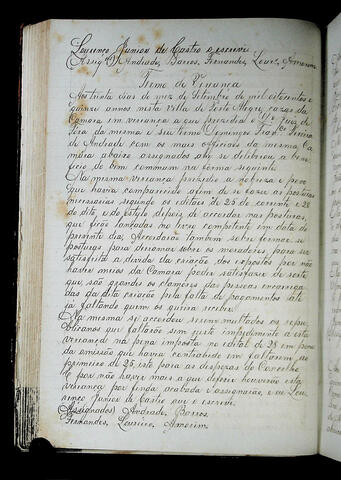 Lourenço Junior de Castro o escrevi
Assig.os Andrade, Barros, Fernandes, Lour.ço, Amorim
Termo de Vereança
Aos trinta dias do mez de Setembro de mil oitocentos e
quinze annos nesta Villa de Porto Alegre, cazas da
Camara em vereança a que prezidio o Juiz de
Fóra da mesma e seu termo Domingos Fran.co
de Andrade com os mais officiaes da mesma Ca-
mara abaixo assignados ahi se deliberou a bem
do bem commum na forma seguinte
Na mesma vereança prezidio a nobreza e povo
que havia comparecido afim de se fazer as posturas
necessarias segundo os editaes de 25 do corrente e 28
do dito, e do estylo depois de accordar nas posturas,
que ficão lançadas no livro competente em data do
prezente dia; Accordarão tambem sobre formar-se
posturas para o sobre os moradores para ser
satisfeita a divida da criação dos expostos por não
haver meios da Camara poder satisfazer de sorte
que, são grandes os clamores das pessoas encarrega-
das da dita criação pela falta de pagamentos até
já faltando quem os queira receber
Na mesma se accordou serem multados os repu-
blicanos que faltarão sem justo impedimento a esta
vereança na pena imposta no edital de 28 em
da omissão que havia contrahido em faltarem ao
primeiro de 25, isto para as despezas do Concelho
E por não haver mais a que deferir houverão esta
vereança por finda acabada e assignarão, e eu Lou-
renço Junior de Castro que o escrevi
Assignados) Andrade, Barros
Fernandes, Lourenço, Amorim